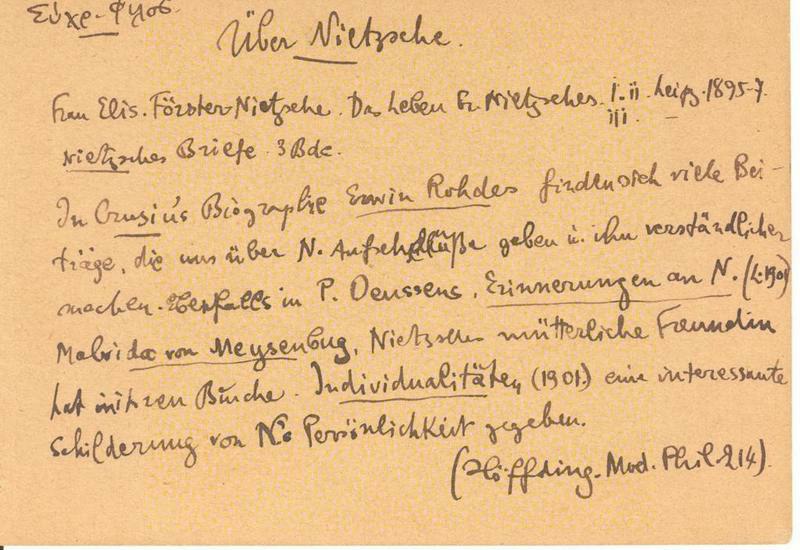 Σύχρ. Φιλοσ.
Über Nietzsche.
Frau Elis. Förster-Nietzsche. Das Leben Fr. Nietzsches. I. II. Leipz. 1895-7.
III.
Nietzsches Briefe. 3 Bde.
In Crusius Biographie Erwin Rohdes finden sich viele Bei-
träge, die uns über N. Aufschlüße geben u. ihn verständlicher
machen. Ebenfalls in P. Deussens, Erinnerungen an N. (L. 1901)
Malvida von Meysenbug, Nietzsches mütterliche Freundin
hat in ihren Buche. Individualitäten (1901.) eine interessante
Schilderung von N's Persönlichkeit gegeben.
(Höffding. Mod. Phil. 214).